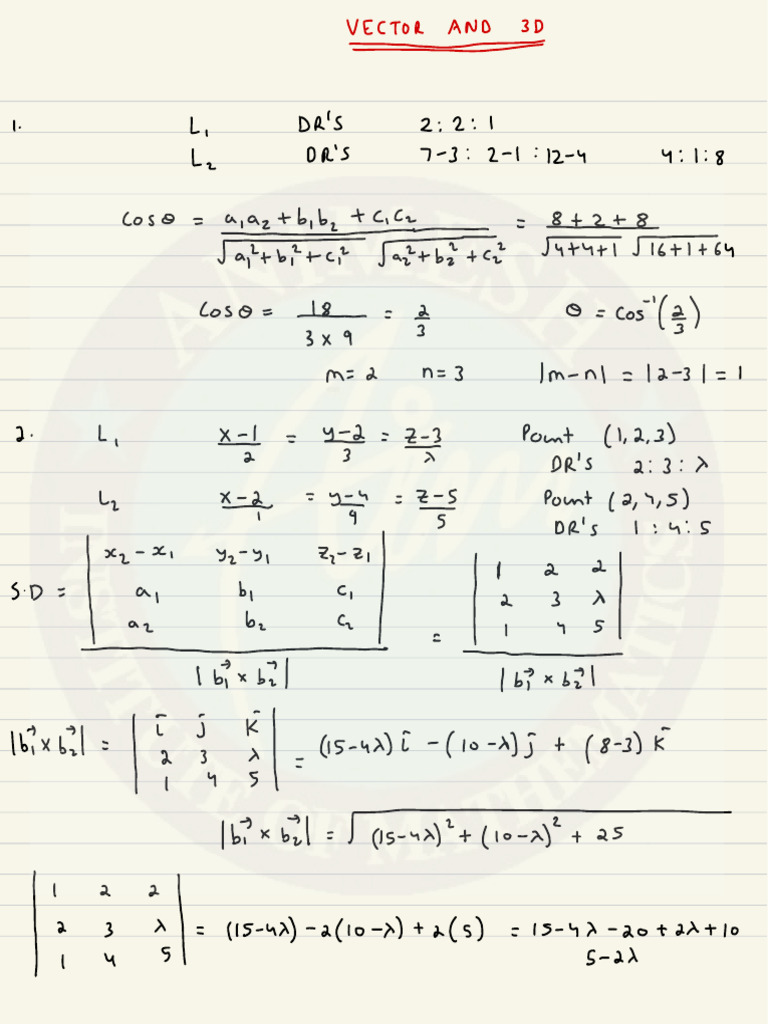 VECTOR AND 3D
1. L₁ DR'S 2:2:1
L₂ DR'S 7-3 : 2-1 : 12-4 4:1:8
Cosθ = (a₁a₂ + b₁b₂ + c₁c₂) / (√(a₁²+b₁²+c₁²) √(a₂²+b₂²+c₂²)) = (8+2+8) / (√(4+4+1) √(16+1+64))
Cosθ = 18/(3×9) = 2/3 θ = Cos⁻¹(2/3)
m=2 n=3 |m-n| = |2-3| = 1
2. L₁ (x-1)/2 = (y-2)/3 = (z-3)/λ Point (1,2,3)
DR's 2:3:λ
L₂ (x-2)/1 = (y-4)/9 = (z-5)/5 Point (2,4,5)
DR's 1:4:5
S.D = |x₂-x₁ y₂-y₁ z₂-z₁; a₁ b₁ c₁; a₂ b₂ c₂| / |b₁⃗ × b₂⃗| = |1 2 2; 2 3 λ; 1 4 5| / |b₁⃗ × b₂⃗|
|b₁⃗ × b₂⃗| = |i̅ j̅ k̅; 2 3 λ; 1 4 5| = (15-4λ)i̅ - (10-λ)j̅ + (8-3)k̅
|b₁⃗ × b₂⃗| = √((15-4λ)² + (10-λ)² + 25)
|1 2 2; 2 3 λ; 1 4 5| = (15-4λ) - 2(10-λ) + 2(5) = 15-4λ-20+2λ+10
5-2λ
ANIMESH
INSTITUTE OF MATHEMATICS